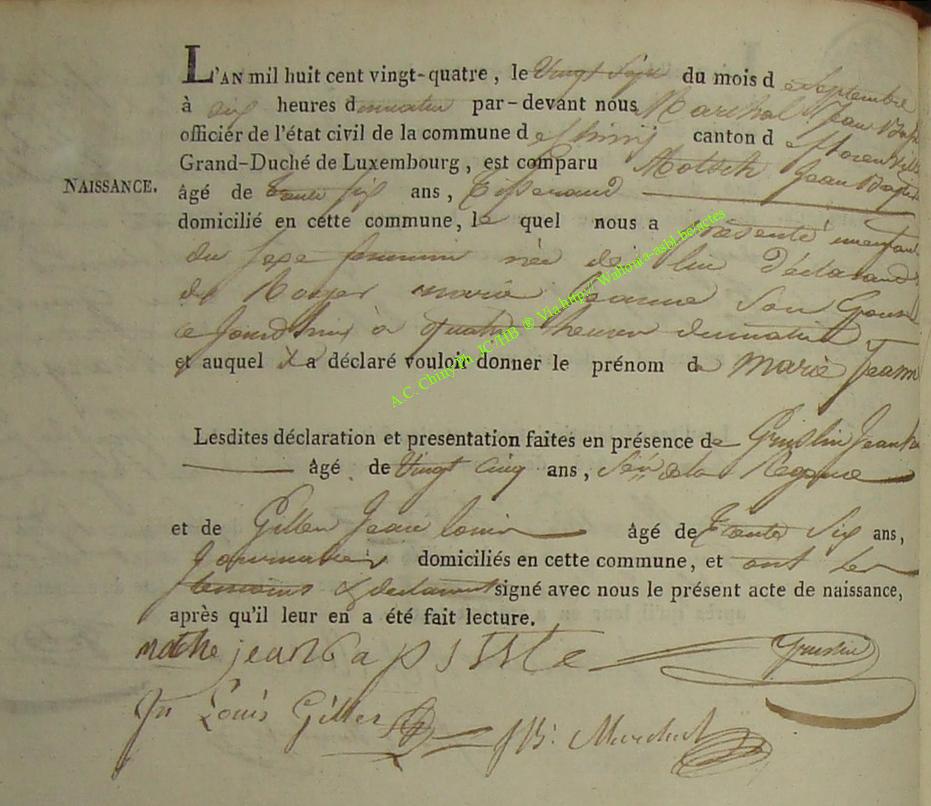 L'AN mil huit cent vingt-quatre, le vingt Sept du mois de Septembre
à heures du matin par-devant nous Marchal Jean Bap
officiér de l'état civil de la commune de Chiny canton de florenville
Grand-Duché de Luxembourg, est comparu Motsch Jean Baptist
NAISSANCE.
âgé de trente six ans, tisserand
domicilié en cette commune, le quel nous a présenté un enfant
du sexe feminin née de lui déclarand
de marie Jeanne Son Epouse
ce Jourdhui à quatre heures du matin
et auquel il a déclaré vouloir donner le prénom de marie Jeann
Lesdites déclaration et presentation faites en présence de Jean
âgé de vingt cinq ans, de la Regence
et de Gillen Jean louis âgé de trente Six ans,
journalier domiciliés en cette commune, et ont les
temoins & declarant signé avec nous le présent acte de naissance,
après qu'il leur en a été fait lecture.
motche jean bapsiste
Jn Louis Gilles JB. Marchal
A.C. Chiny Ph. JC/HB ® Via http://Wallonia-asbl-be/actes